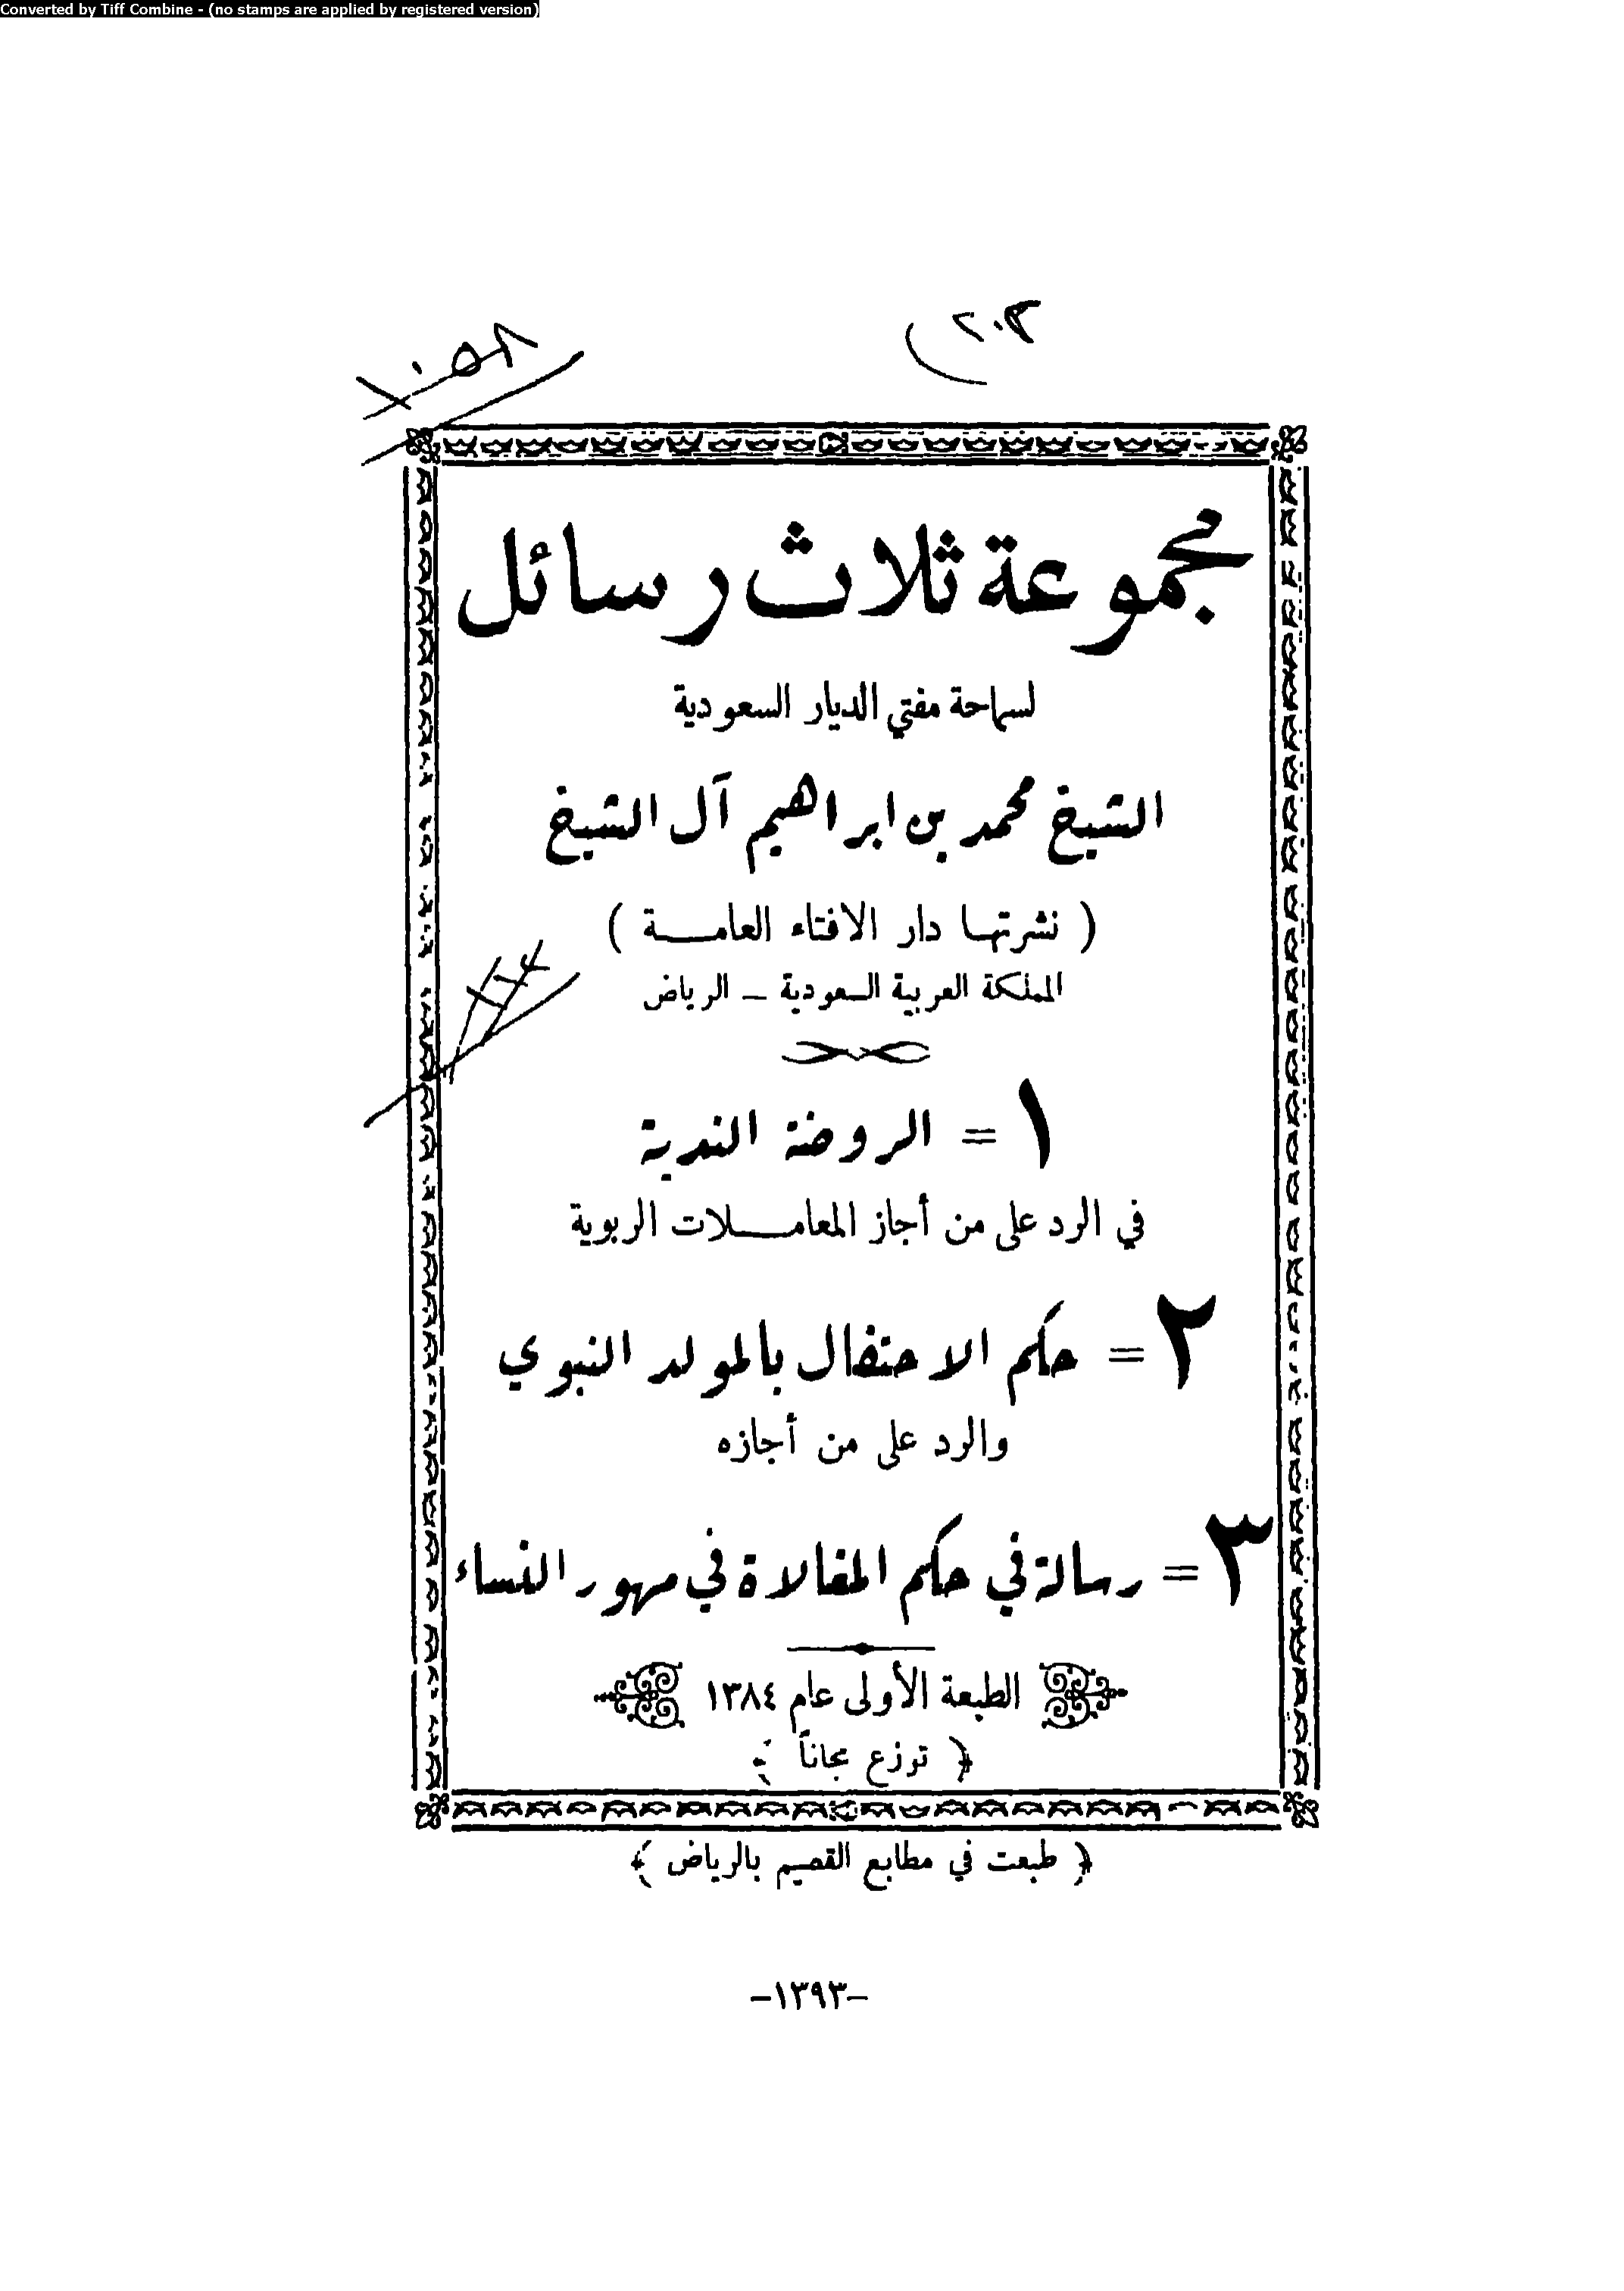 Converted by Tiff Combine - (no stamps are applied by registered version)
١٠٥٨
مجموعة ثلاث رسائل
لسماحة مفتي الديار السعودية
الشيخ محمد بن ابراهيم آل الشيخ
( نشرتها دار الافتاء العامـــة )
المملكة العربية السعودية – الرياض
١ = الروضة الندية
في الرد على من أجاز المعامـــلات الربوية
٢ = حكم الاحتفال بالمولد النبوي
والرد على من أجازه
٣ = رسالة في حكم المغالاة في مهور النساء
الطبعة الأولى عام ١٣٨٤
﴿ توزع مجاناً ﴾
﴿ طبعت في مطابع القصيم بالرياض ﴾
–١٣٩٣–